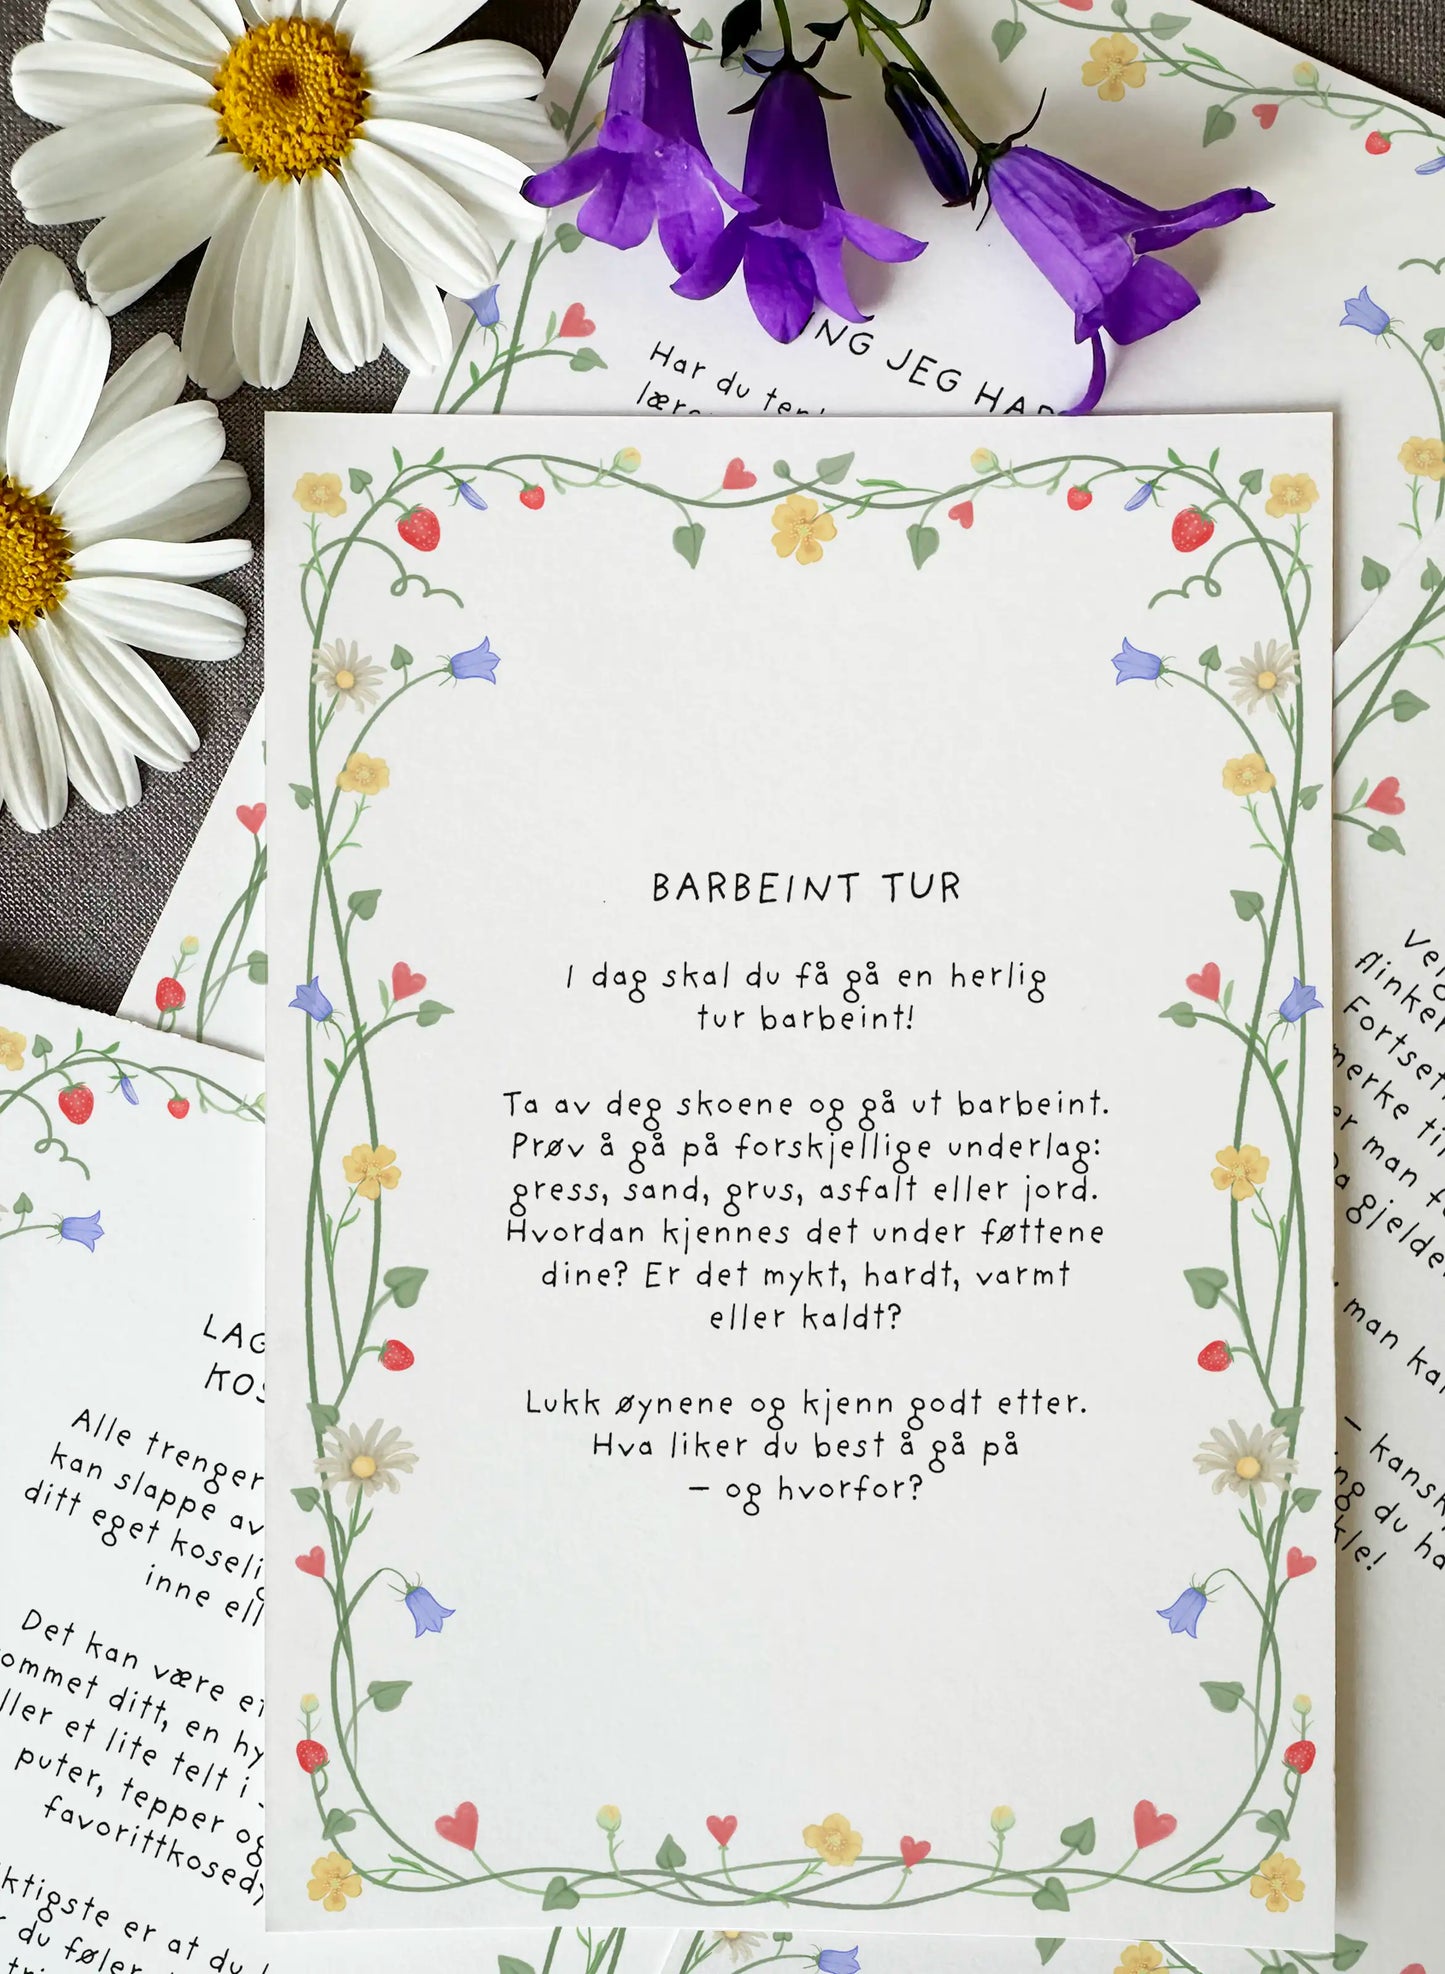 NG JEG HAR
Har du
lære
BARBEINT TUR
I dag skal du få gå en herlig
tur barbeint!
Ta av deg skoene og gå ut barbeint.
Prøv å gå på forskjellige underlag:
gress, sand, grus, asfalt eller jord.
Hvordan kjennes det under føttene
dine? Er det mykt, hardt, varmt
eller kaldt?
Lukk øynene og kjenn godt etter.
Hva liker du best å gå på
– og hvorfor?
LAG
KOS
Alle trenger
kan slappe av
ditt eget koseli
inne ell
Det kan være et
ommet ditt, en hy
ller et lite telt i
puter, tepper og
favorittkosedy
ktigste er at du
du føler
flinker
Fortset
merke ti
er man f
a gjelde
man ka
– kansk
ng du ha
kle!